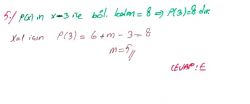 5-) P(x) in x-3 ile böl. kalanı = 8 ⇒ P(3)=8 dir.
x=1 için P(3) = 6+m-3=8
m=5//
CEVAP: E